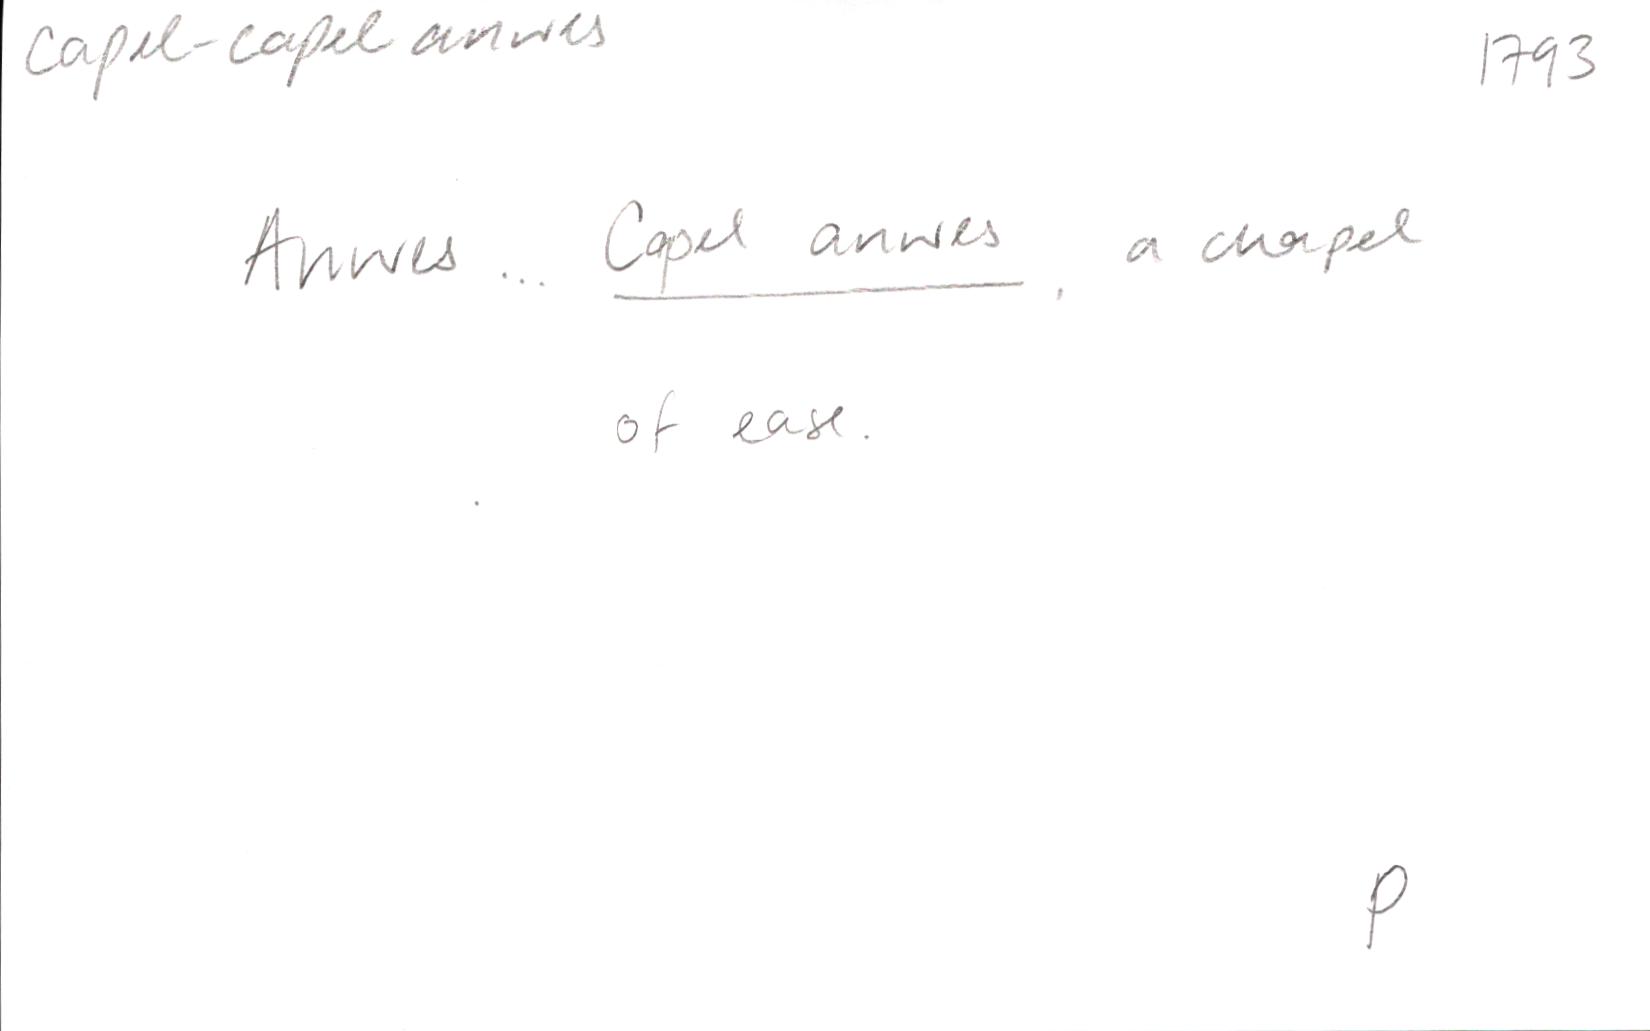 capel-capel anwes
1793
Anwes ... Capel anwes, a chapel
of ease.
P